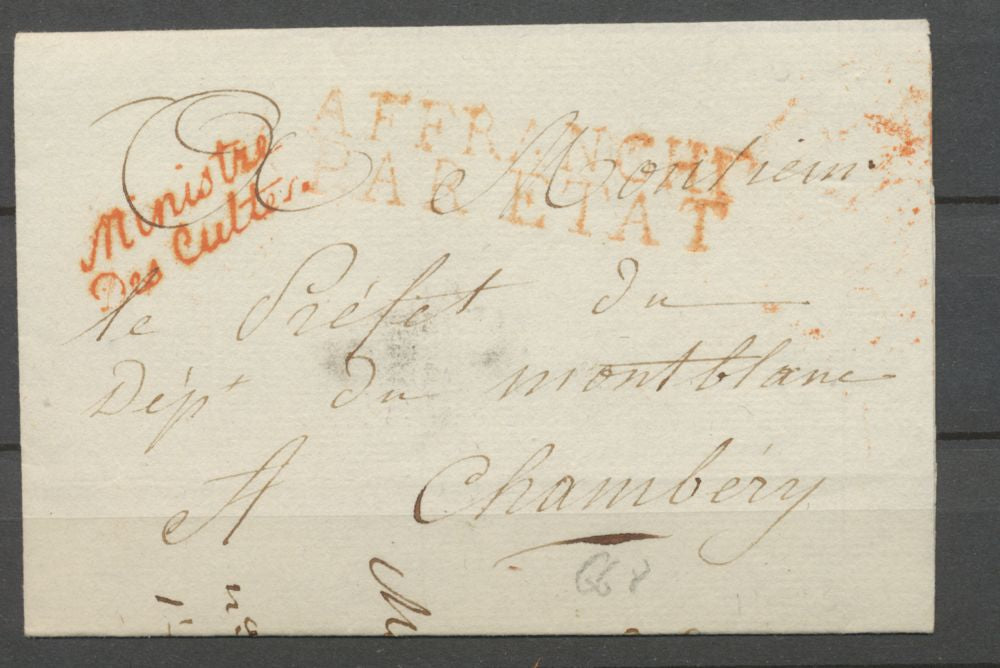 Ministre
Des Cultes.
AFFRANCHI
PAR ETAT
A Monsieur
le Préfet du
Dép.t du montblanc
A Chambéry